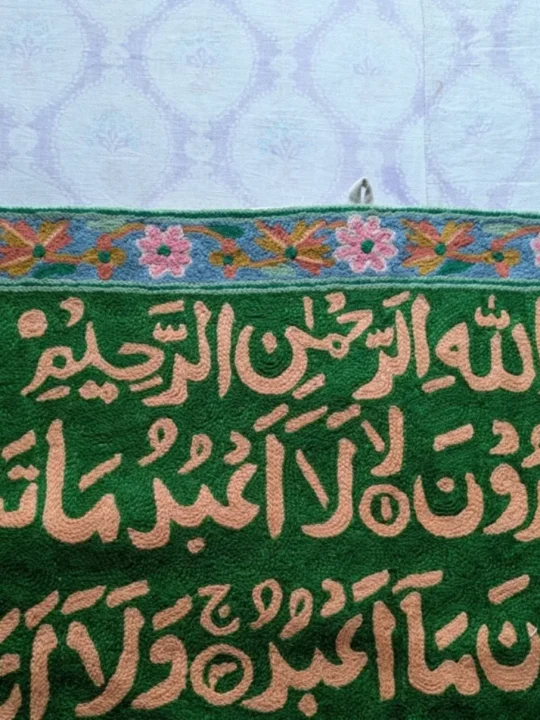 اللهِ الرَّحْمٰنِ الرَّحِيْمِ
رُوْنَ ۙ ١ لَا اَعْبُدُ مَا تَ
نَ مَا اَعْبُدُ ۚ ٣ وَلَا اَ